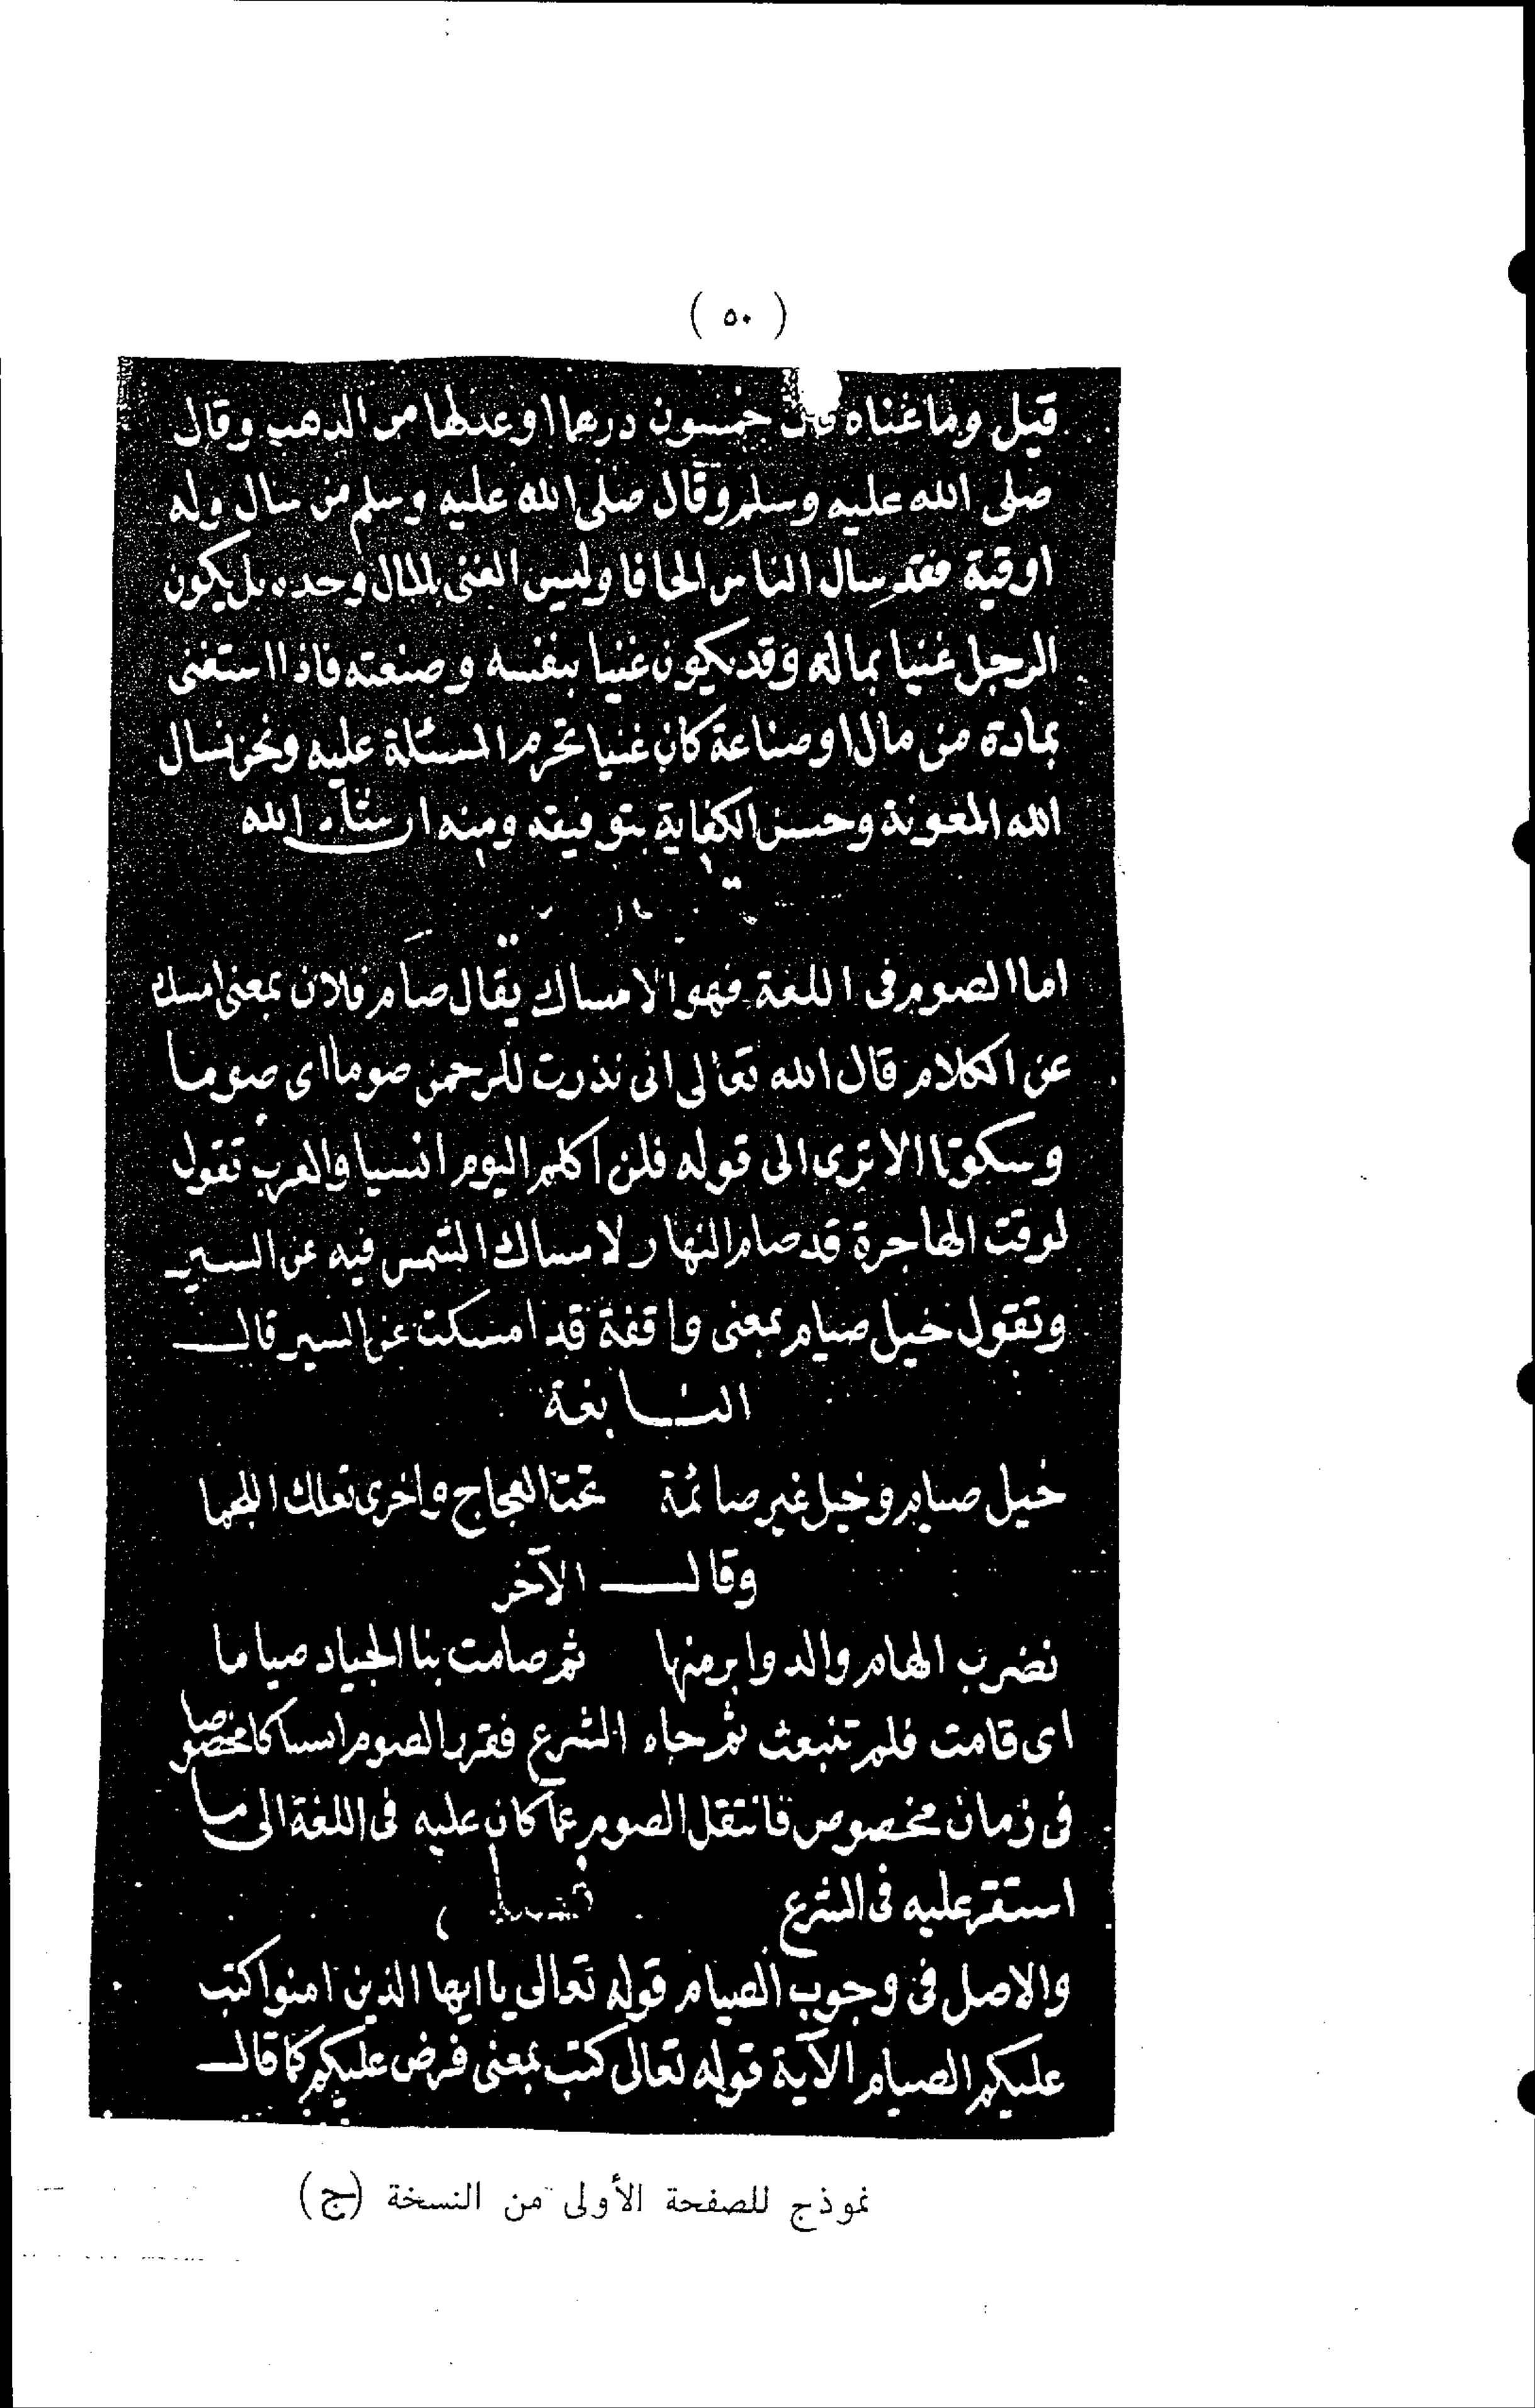 ( ٥٠ )
قيل وما غناه قال خمسون درهما او عدلها من الذهب وقال
صلى الله عليه وسلم وقال صلى الله عليه وسلم من سال وله
اوقية فقد سال الناس الحافا وليس الغنى بالمال وحده بل يكون
الرجل غنيا بماله وقد يكون غنيا بنفسه وصنعته فاذا استغنى
بمادة من مال او صناعة كان غنيا تحرم المسئلة عليه ونحن نسال
الله المعونة وحسن الكفاية بتوفيقه ومنه ان شاء الله
اما الصوم فى اللغة فهو الامساك يقال صام فلان بمعنى امسك
عن الكلام قال الله تعالى انى نذرت للرحمن صوما اى صوما
وسكوتا الا ترى الى قوله فلن اكلم اليوم انسيا والعرب تقول
لوقت الهاجرة قد صام النهار لامساك الشمس فيه عن السير
وتقول خيل صيام بمعنى واقفة قد امسكت عن السير قال
النابغة
خيل صيام وخيل غير صائمة تحت العجاج واخرى تعلك اللجما
وقال الآخر
نضرب الهام والدوابر منها ثم صامت بنا الجياد صياما
اى قامت فلم تنبعث ثم جاء الشرع فقرر الصوم امساكا مخصوصا
فى زمان مخصوص فانتقل الصوم عما كان عليه فى اللغة الى ما
استقر عليه فى الشرع
والاصل فى وجوب الصيام قوله تعالى يا ايها الذين امنوا كتب
عليكم الصيام الآية قوله تعالى كتب بمعنى فرض عليكم كما قال
نموذج للصفحة الأولى من النسخة (ج)